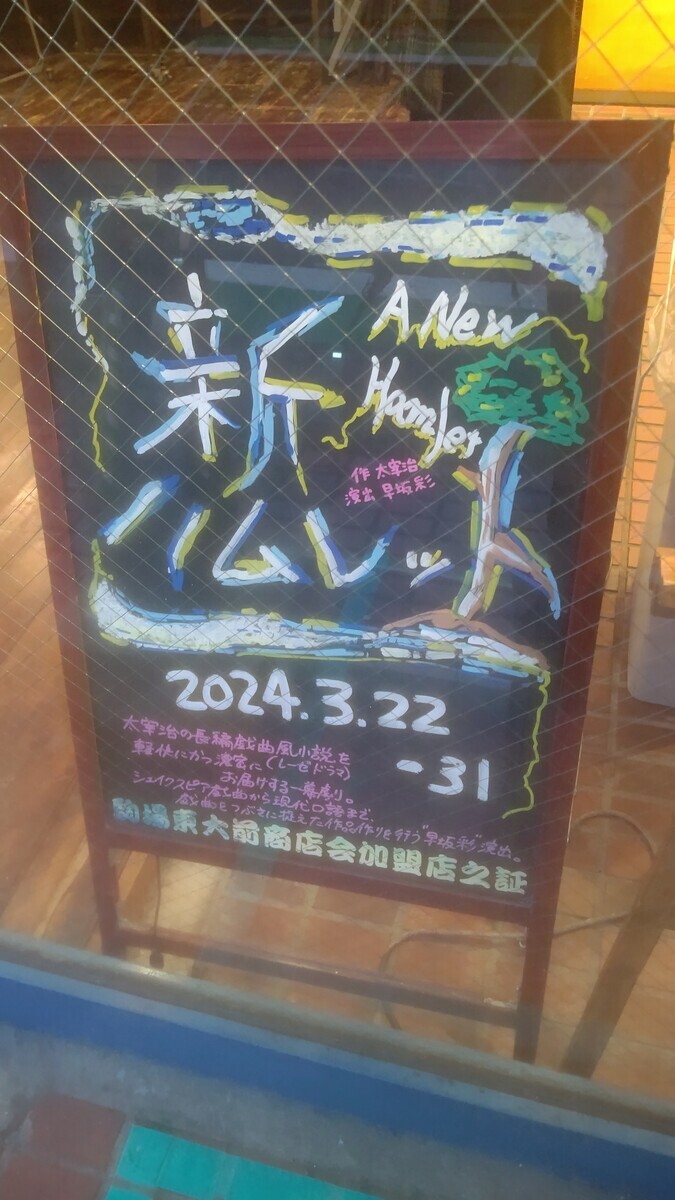 新
ハムレット
A New
Hamlet
作 太宰治
演出 早坂彩
2024.3.22
-31
太宰治の長編戯曲風小説を
軽快にかつ濃密に(レーゼドラマ)
お届けする一幕劇り。
シェイクスピア戯曲から現代口語まで、
戯曲をつぶさに捉えた作品作りを行う"早坂彩"演出。
駒場東大前商店会加盟店之証